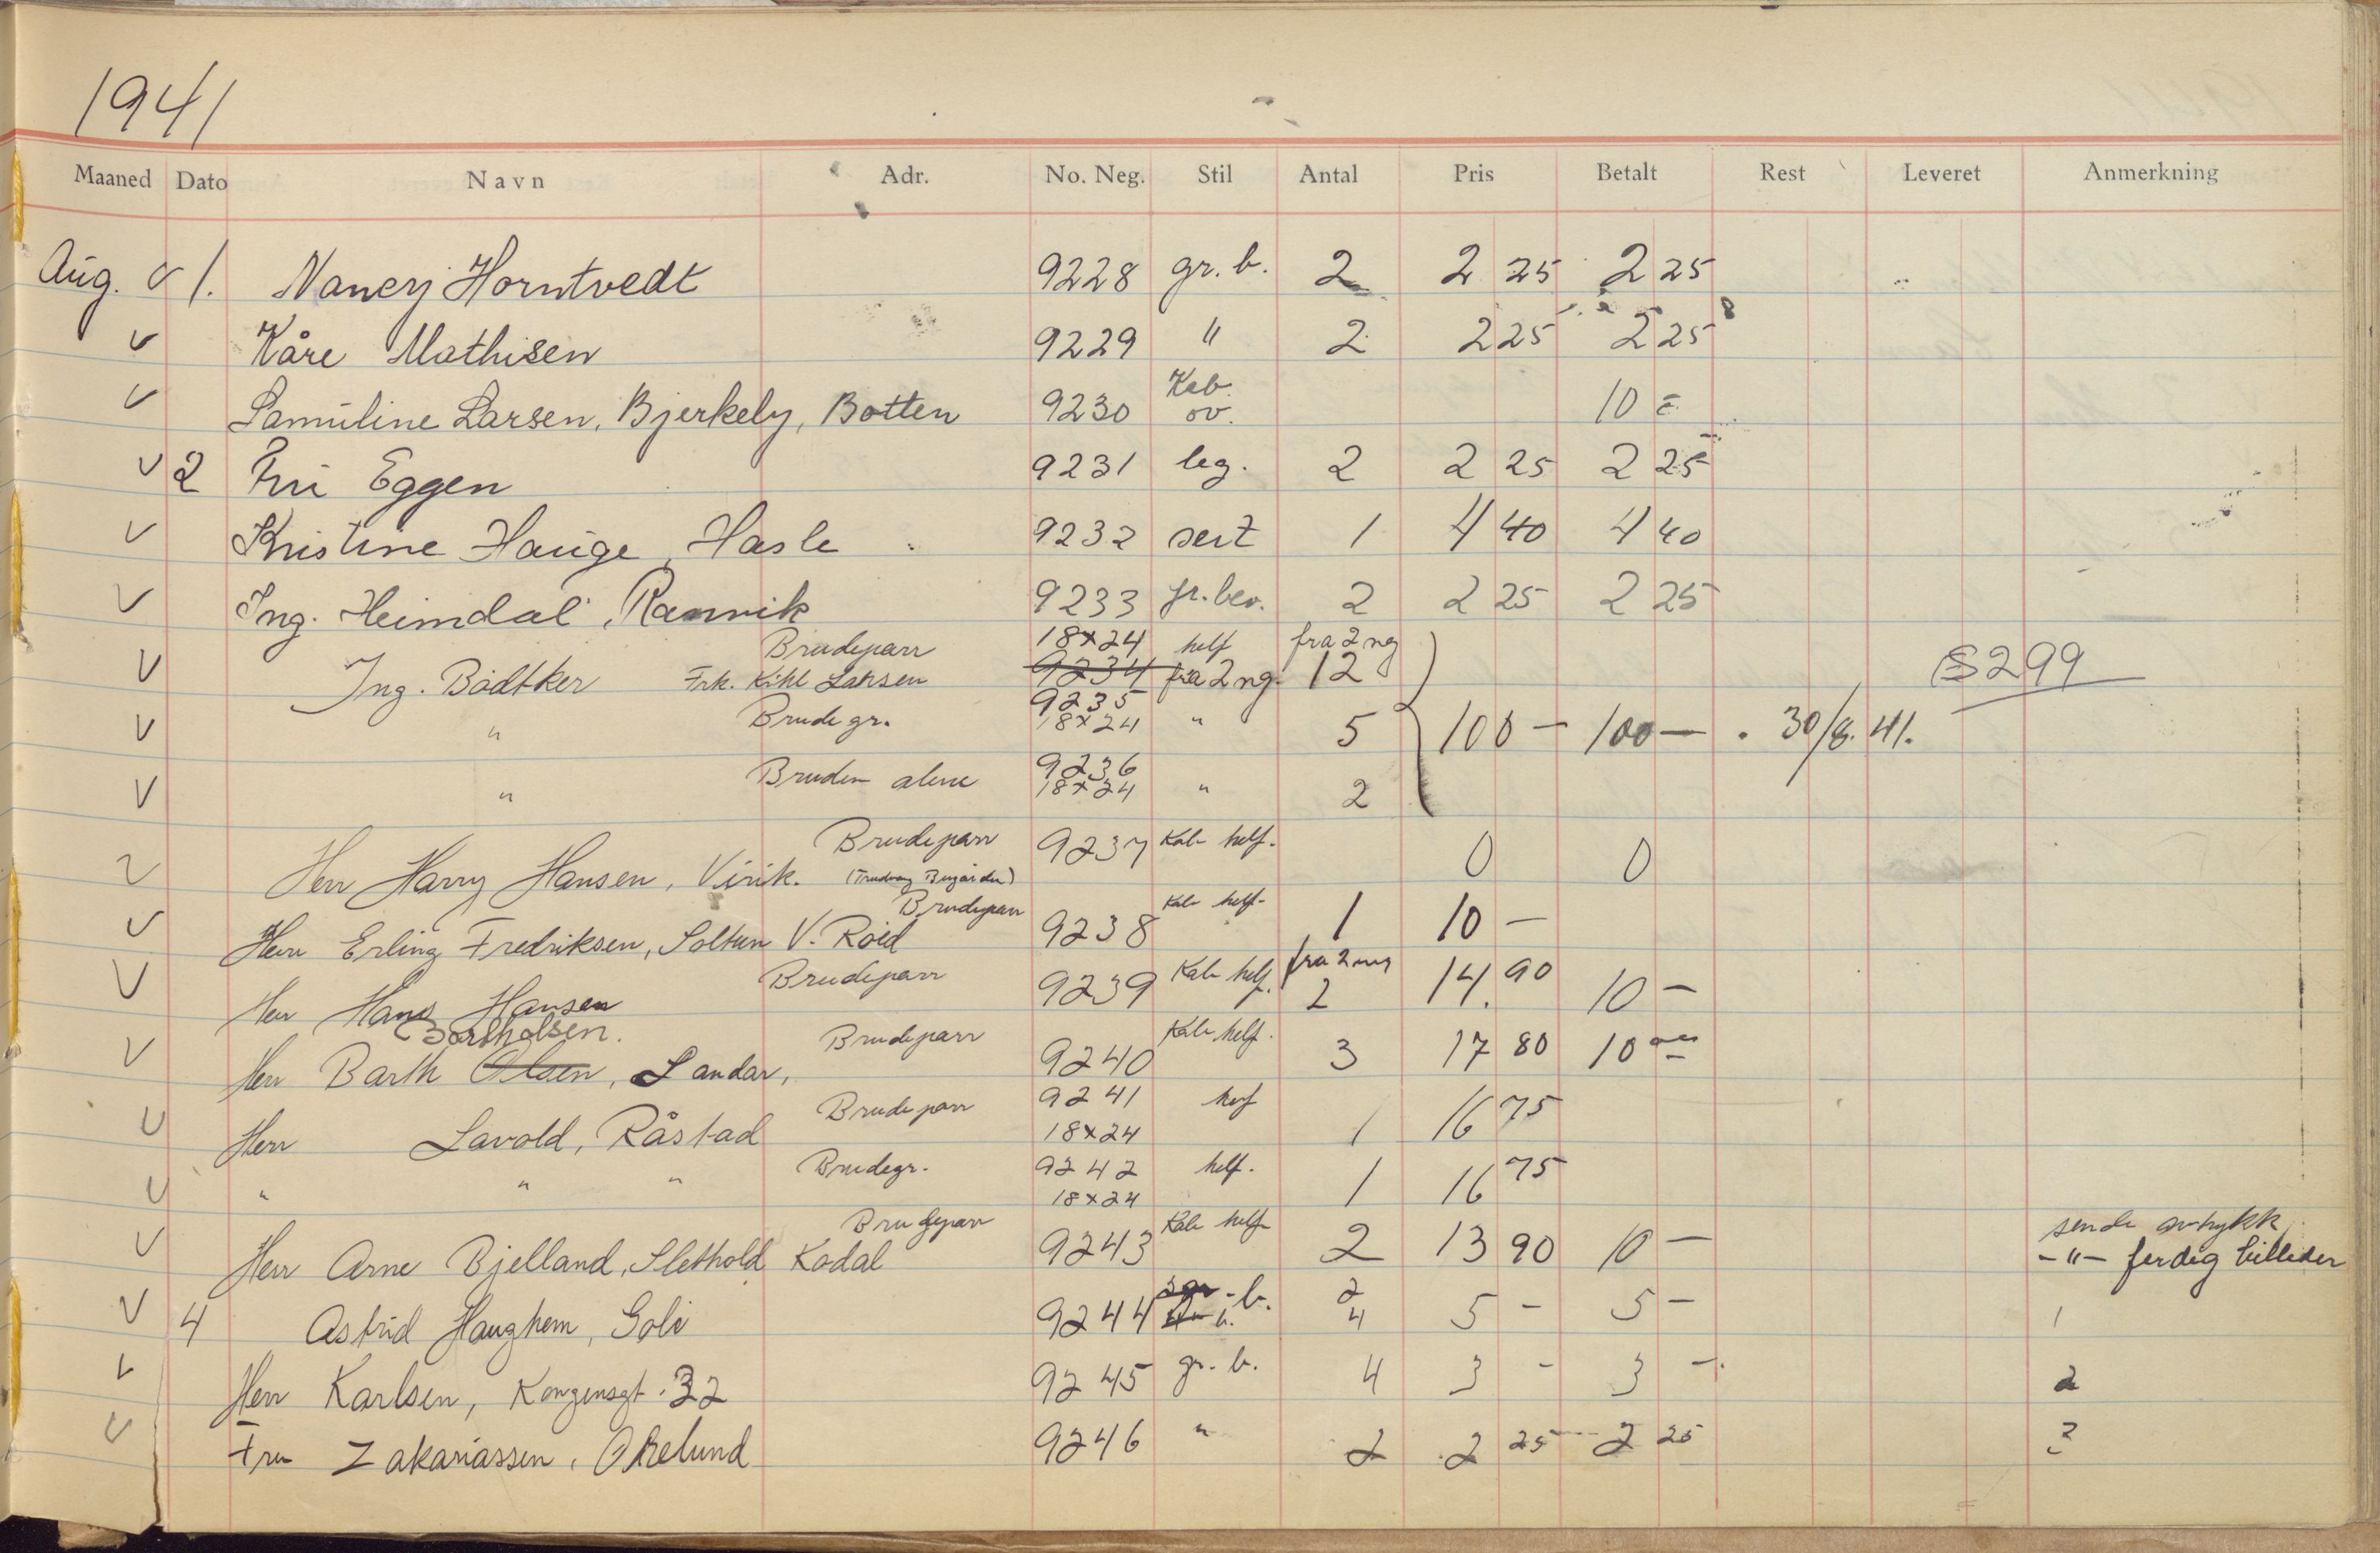 1941
Maaned Dato Navn Adr. No. Neg. Stil Antal Pris Betalt Rest Leveret Anmerkning
Aug. V 1. Nancy Horntvedt 9228 gr. b. 2 2 25 2 25
V Kåre Mathisen 9229 " 2 2 25 2 25
V Samuline Larsen, Bjerkely, Botten 9230 Kab. ov. 10 =
V 2 Fru Eggen 9231 leg. 2 2 25 2 25
V Kristine Hauge, Hasle 9232 sert 1 4 40 4 40
V Ing. Heimdal, Ranvik 9233 gr. bev. 2 2 25 2 25
Brudeparr 18×24 helf fra 2 ng
V Ing. Bödtker Frk. Kihl Larsen 9234 fra 2 ng. 12 S299
9235
V " Brudegr. 18×24 " 5 100 — 100 — . 30/8. 41.
9236
V " Bruden alene 18×24 " 2
Brudeparr 9237 Kab helf. 0 0
V Herr Harry Hansen, Virik.
Brudeparr Kab helf-
V Herr Erling Fredriksen, Soltun V. Roid 9238 1 10 —
Brudeparr 9239 Kab helf. fra 2 ng 2 14.90 10 —
V Herr Hans Hansen
Bartholsen. Brudeparr Kab helf.
V Herr Barth Olsen, Sandar, 9240 3 17 80 10
Brudeparr 9241 hef
V Herr Lavold, Råstad 18×24 1 16 75
Brudegr. 9242 helf.
V " " " 18×24 1 16 75
Brudeparr Kab helf sende avtrykk
V Herr Arne Bjelland, Slethold Kodal 9243 2 13 90 10 — -"- ferdig billeder
- b. 2
V 4 Astrid Haughem, Goli 9244 b. 4 5 - 5 - 1
V Herr Karlsen, Kongensgt. 32 9245 gr. b. 4 3 - 3 -. 2
V Fru Zakariassen, Ekelund 9246 " 2 2 25 2 25 3